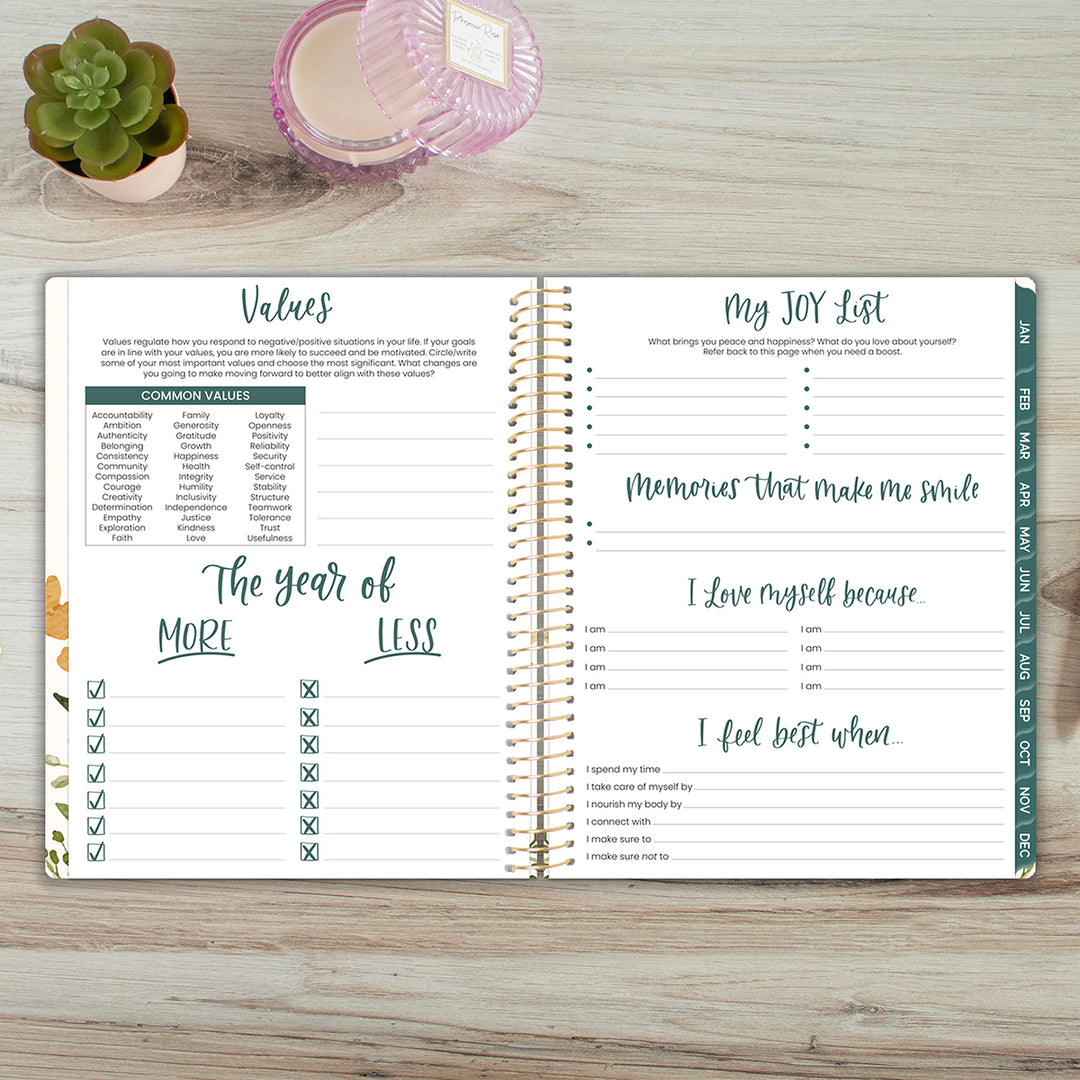 Prosecco Rose
Values
Values regulate how you respond to negative/positive situations in your life. If your goals
are in line with your values, you are more likely to succeed and be motivated. Circle/write
some of your most important values and choose the most significant. What changes are
you going to make moving forward to better align with these values?
COMMON VALUES
Accountability Family Loyalty
Ambition Generosity Openness
Authenticity Gratitude Positivity
Belonging Growth Reliability
Consistency Happiness Security
Community Health Self-control
Compassion Integrity Service
Courage Humility Stability
Creativity Inclusivity Structure
Determination Independence Teamwork
Empathy Justice Tolerance
Exploration Kindness Trust
Faith Love Usefulness
The Year of
MORE LESS
My JOY List
What brings you peace and happiness? What do you love about yourself?
Refer back to this page when you need a boost.
Memories that make me smile
I Love myself because...
I am I am
I am I am
I am I am
I am I am
I feel best when...
I spend my time
I take care of myself by
I nourish my body by
I connect with
I make sure to
I make sure not to
JAN
FEB
MAR
APR
MAY
JUN
JUL
AUG
SEP
OCT
NOV
DEC